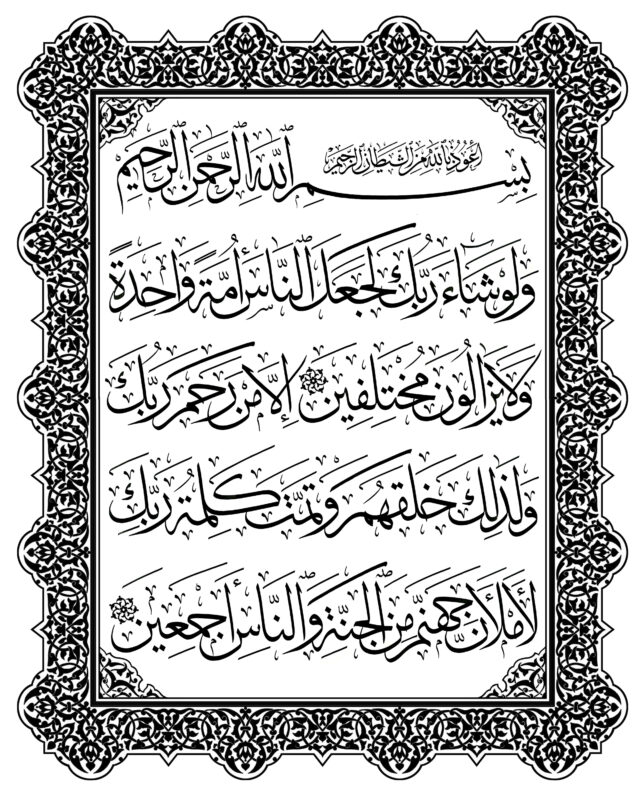 اعوذ بالله من الشيطان الرجيم
بِسْمِ اللهِ الرَّحْمنِ الرَّحِيمِ
وَلَوْ شَاءَ رَبُّكَ لَجَعَلَ النَّاسَ أُمَّةً وَاحِدَةً
وَلَا يَزَالُونَ مُخْتَلِفِينَ إِلَّا مَن رَّحِمَ رَبُّكَ
وَلِذَلِكَ خَلَقَهُمْ وَتَمَّتْ كَلِمَةُ رَبِّكَ
لَأَمْلَأَنَّ جَهَنَّمَ مِنَ الْجِنَّةِ وَالنَّاسِ أَجْمَعِينَ